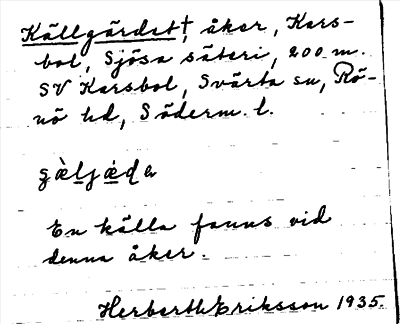 Källgärdet†, åker, Kars-
bol, Sjösa säteri, 200 m.
SV Karsbol, Svärta sn, Rö-
nö hd, Söderm. l.
En källa fanns vid
denna åker.
Herbert Eriksson 1935.